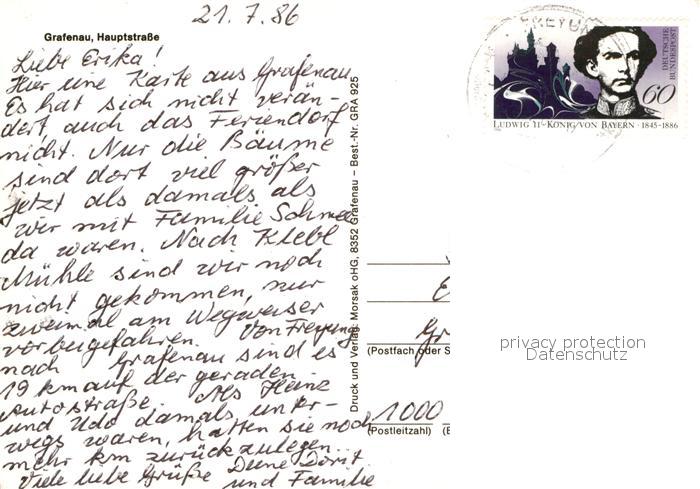 21.7.86
Grafenau, Hauptstraße
Liebe Erika!
Hier eine Karte aus Grafenau
Es hat sich nicht verän-
dert auch das Feriendorf
nicht. Nur die Bäume
sind dort viel größer
jetzt als damals als
wir mit Familie Schme
da waren. Nach Klebl
Mühle sind wir noch
nicht gekommen, nur
zweimal am Wegweiser
vorbeigefahren. Von Freyung
nach Grafenau sind es
19 km auf der geraden
Autostraße. Als Heinz
und Udo damals unter-
wegs waren, hatten sie noch
mehr km zurückzulegen.
Viele liebe Grüße Deine Dorit
und Familie
Druck und Verlag: Morsak oHG, 8352 Grafenau – Best.-Nr. GRA 925
FREYUNG
DEUTSCHE
BUNDESPOST
60
LUDWIG II · KÖNIG VON BAYERN · 1845-1886
E
Gr
(Postfach oder S
1000
(Postleitzahl) (B
privacy protection
Datenschutz